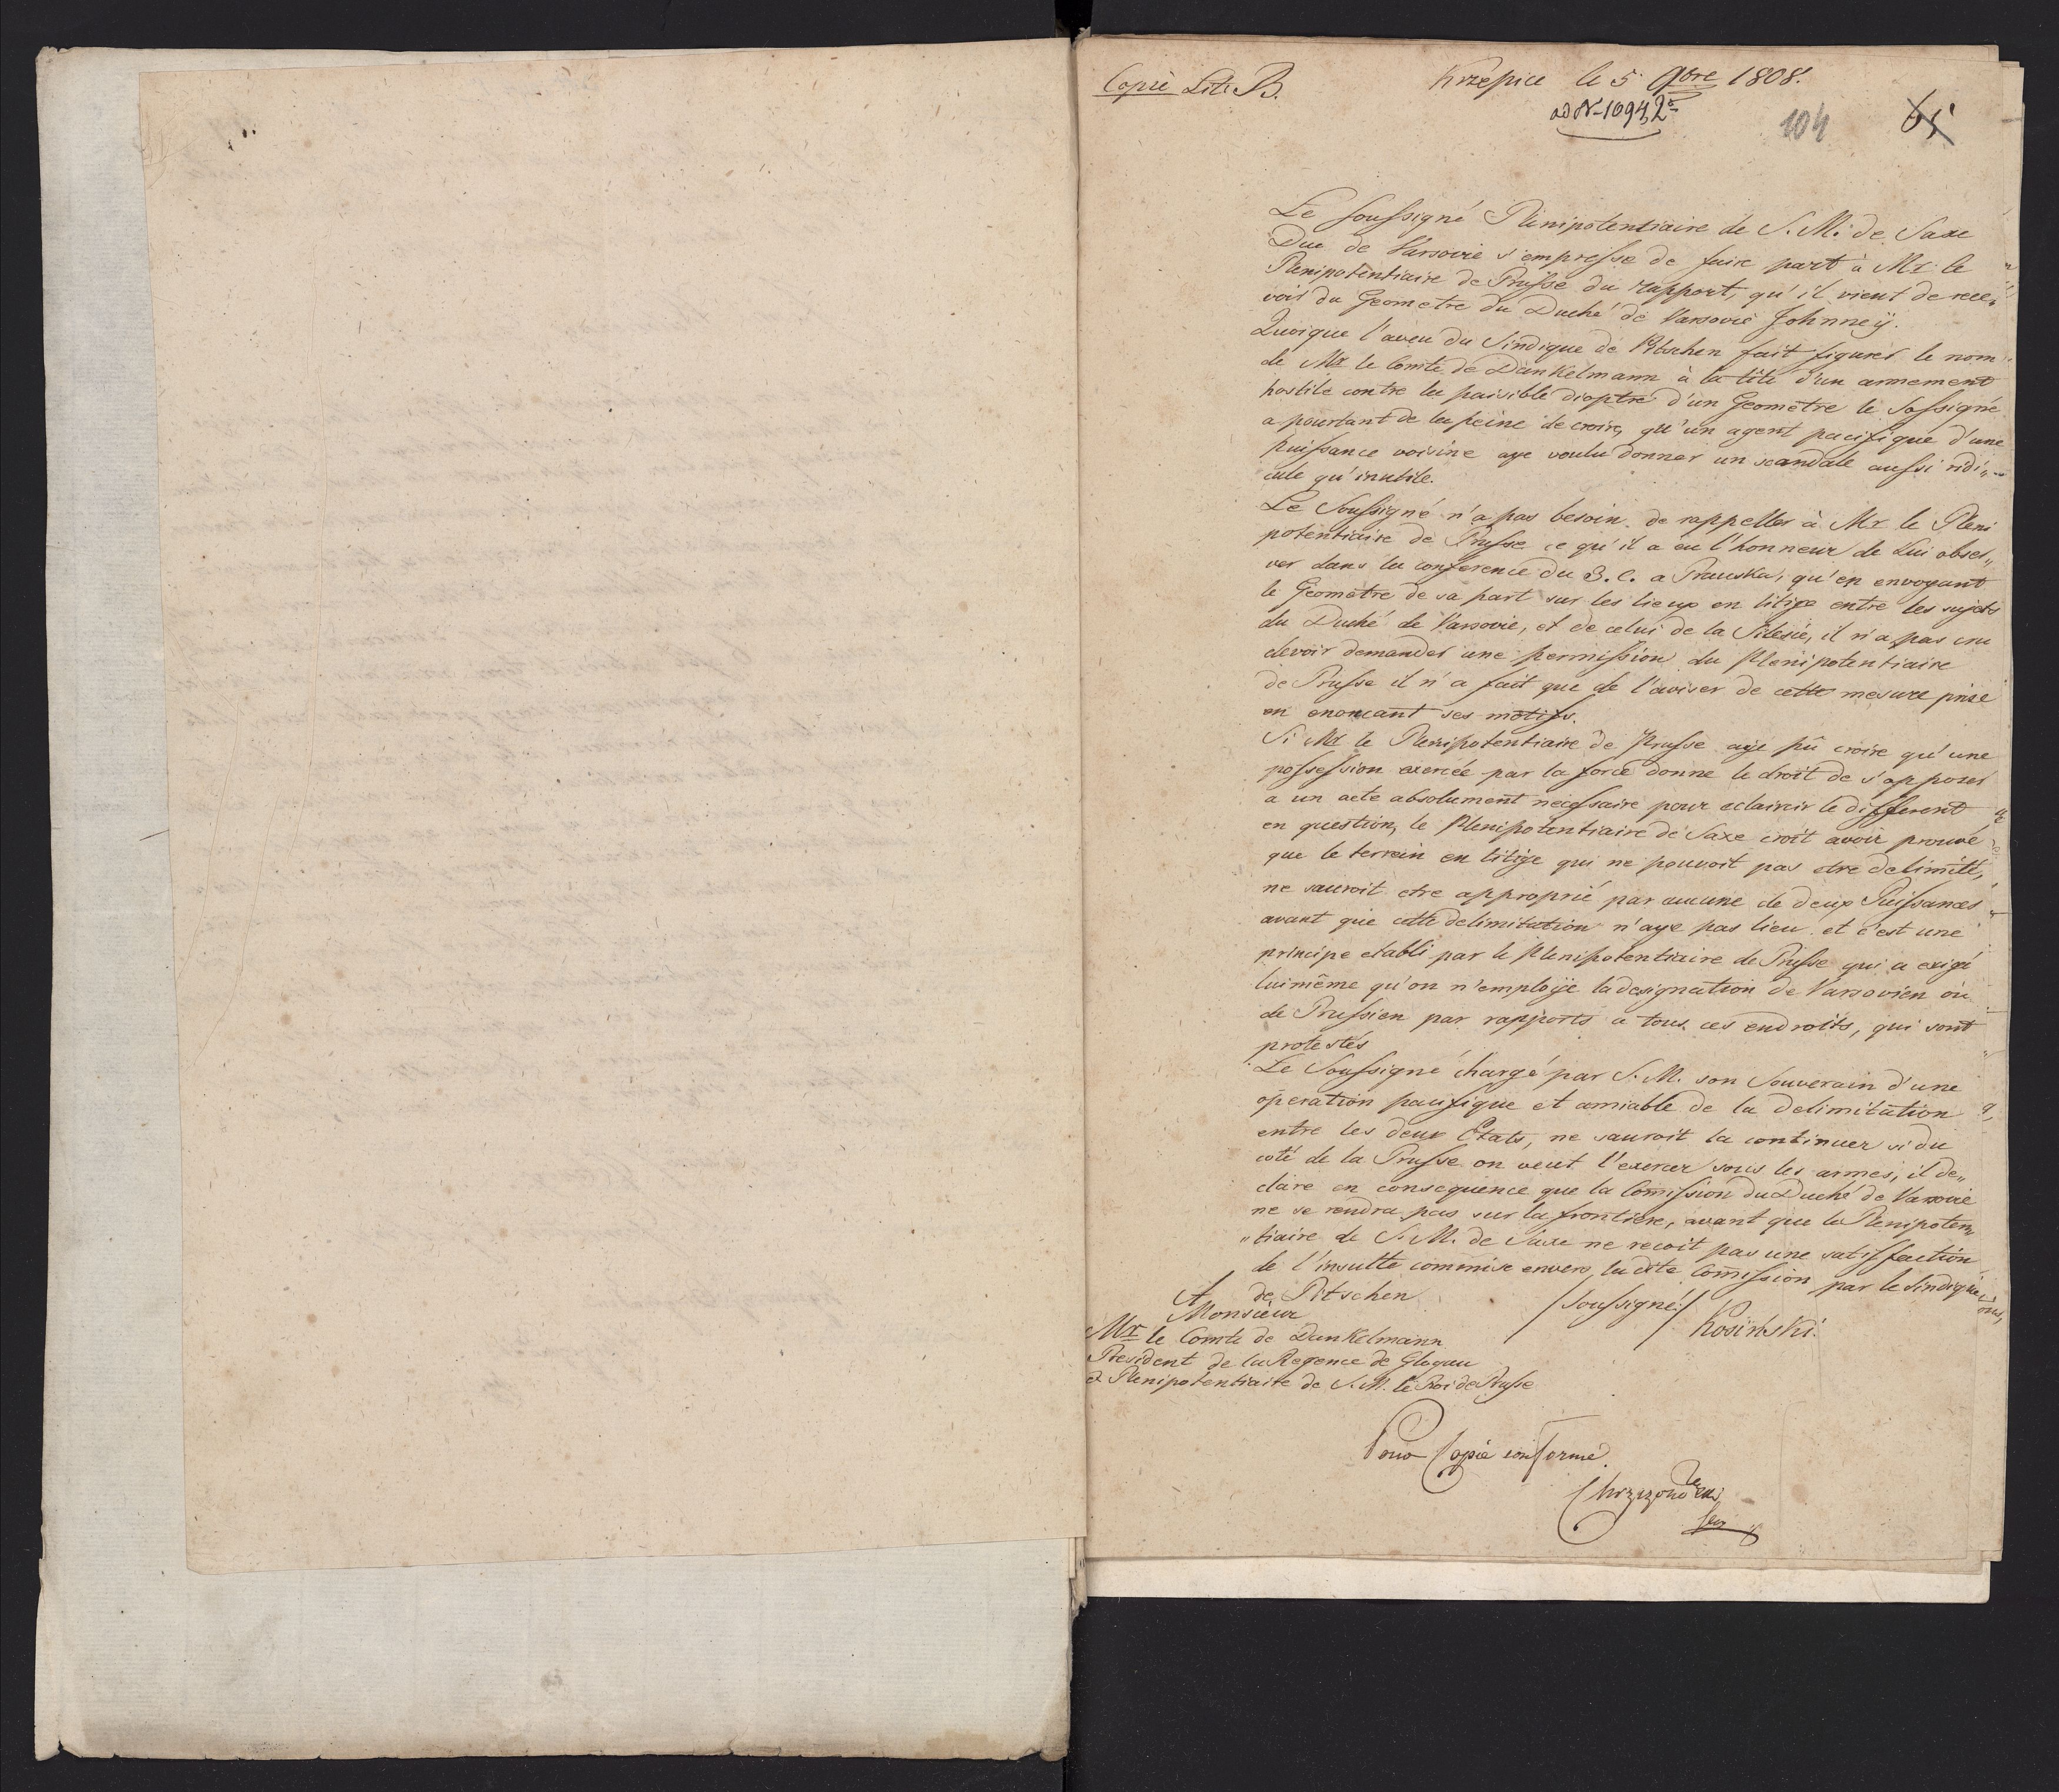 Copie Lit: B.
Krzépice le 5 9bre 1808.
ad N-1094,2
104
65
Le soussigné Plenipotentiaire de S. M. de Saxe
Duc de Varsovie s'empresse de faire part à Mr le
Plenipotentiaire de Prusse du rapport, qu'il vient de rece„
voir du Geometre du Duché de Varsovie Johnneÿ.
Quoique l'aveu du Sindique de Pitschen fait figurer le nom
de Mr le Comte de Dankelmann à la tête d'un armement
hostile contre la paisible dioptre d'un Geometre le Sossigné
a pourtant de la peine de croire, qu'un agent pacifique d'une
puissance voisine aye voulu donner un scandale aussi ridi„
cule qu'inutile.
Le Soussigné n'a pas besoin de rappeller à Mr le Pleni
potentiaire de Prusse ce qu'il a eu l'honneur de Lui obser„
ver dans la conference du 3. c. a Prauska, qu'en envoyant
le Geometre de sa part sur les lieux en litige entre les sujets
du Duché de Varsovie, et de celui de la Silesie, il n'a pas cru
devoir demander une permission du Plenipotentiaire
de Prusse il n'a fait que de l'aviser de cette mesure prise
en enoncant ses motifs.
Si Mr le Plenipotentiaire de Prusse aye pû croire qu'une
possession exercée par la force donne le droit de s'opposer
a un acte absolument necessaire pour eclaircir le different
en question, le Plenipotentiaire de Saxe croit avoir prouvé
que le terrein en litige qui ne pouvoit pas etre delimité,
ne sauroit etre approprié par aucune de deux Puissances
avant que cette delimitation n'aye pas lieu et c'est une
principe etabli par le Plenipotentiaire de Prusse qui a exigé
luimême qu'on n'emploÿe la designation de Varsovien ou
de Prussien par rapports a tous ces endroits, qui sont
protestés
Le Soussigné chargé par S. M. son Souverain d'une
operation pacifique et amiable de la delimitation
entre les deux Etats, ne sauroit la continuer si du
coté de la Prusse on veut l'exercer sous les armes, il de„
clare en consequence que la Comission du Duché de Varsovie
ne se rendra pas sur la frontiere, avant que le Plenipoten„
„tiaire de S. M. de Saxe ne recoit pas une satisfaction
de l'insulte commise envers la dite Comission par le Sindique
de Pitschen
/soussigné/ Kosinski.
A
Monsieur
Mr le Comte de Dankelmann
President de la Regence de Glogau
et Plenipotentiaire de S. M. le Roi de Prusse
Pour Copie conforme.